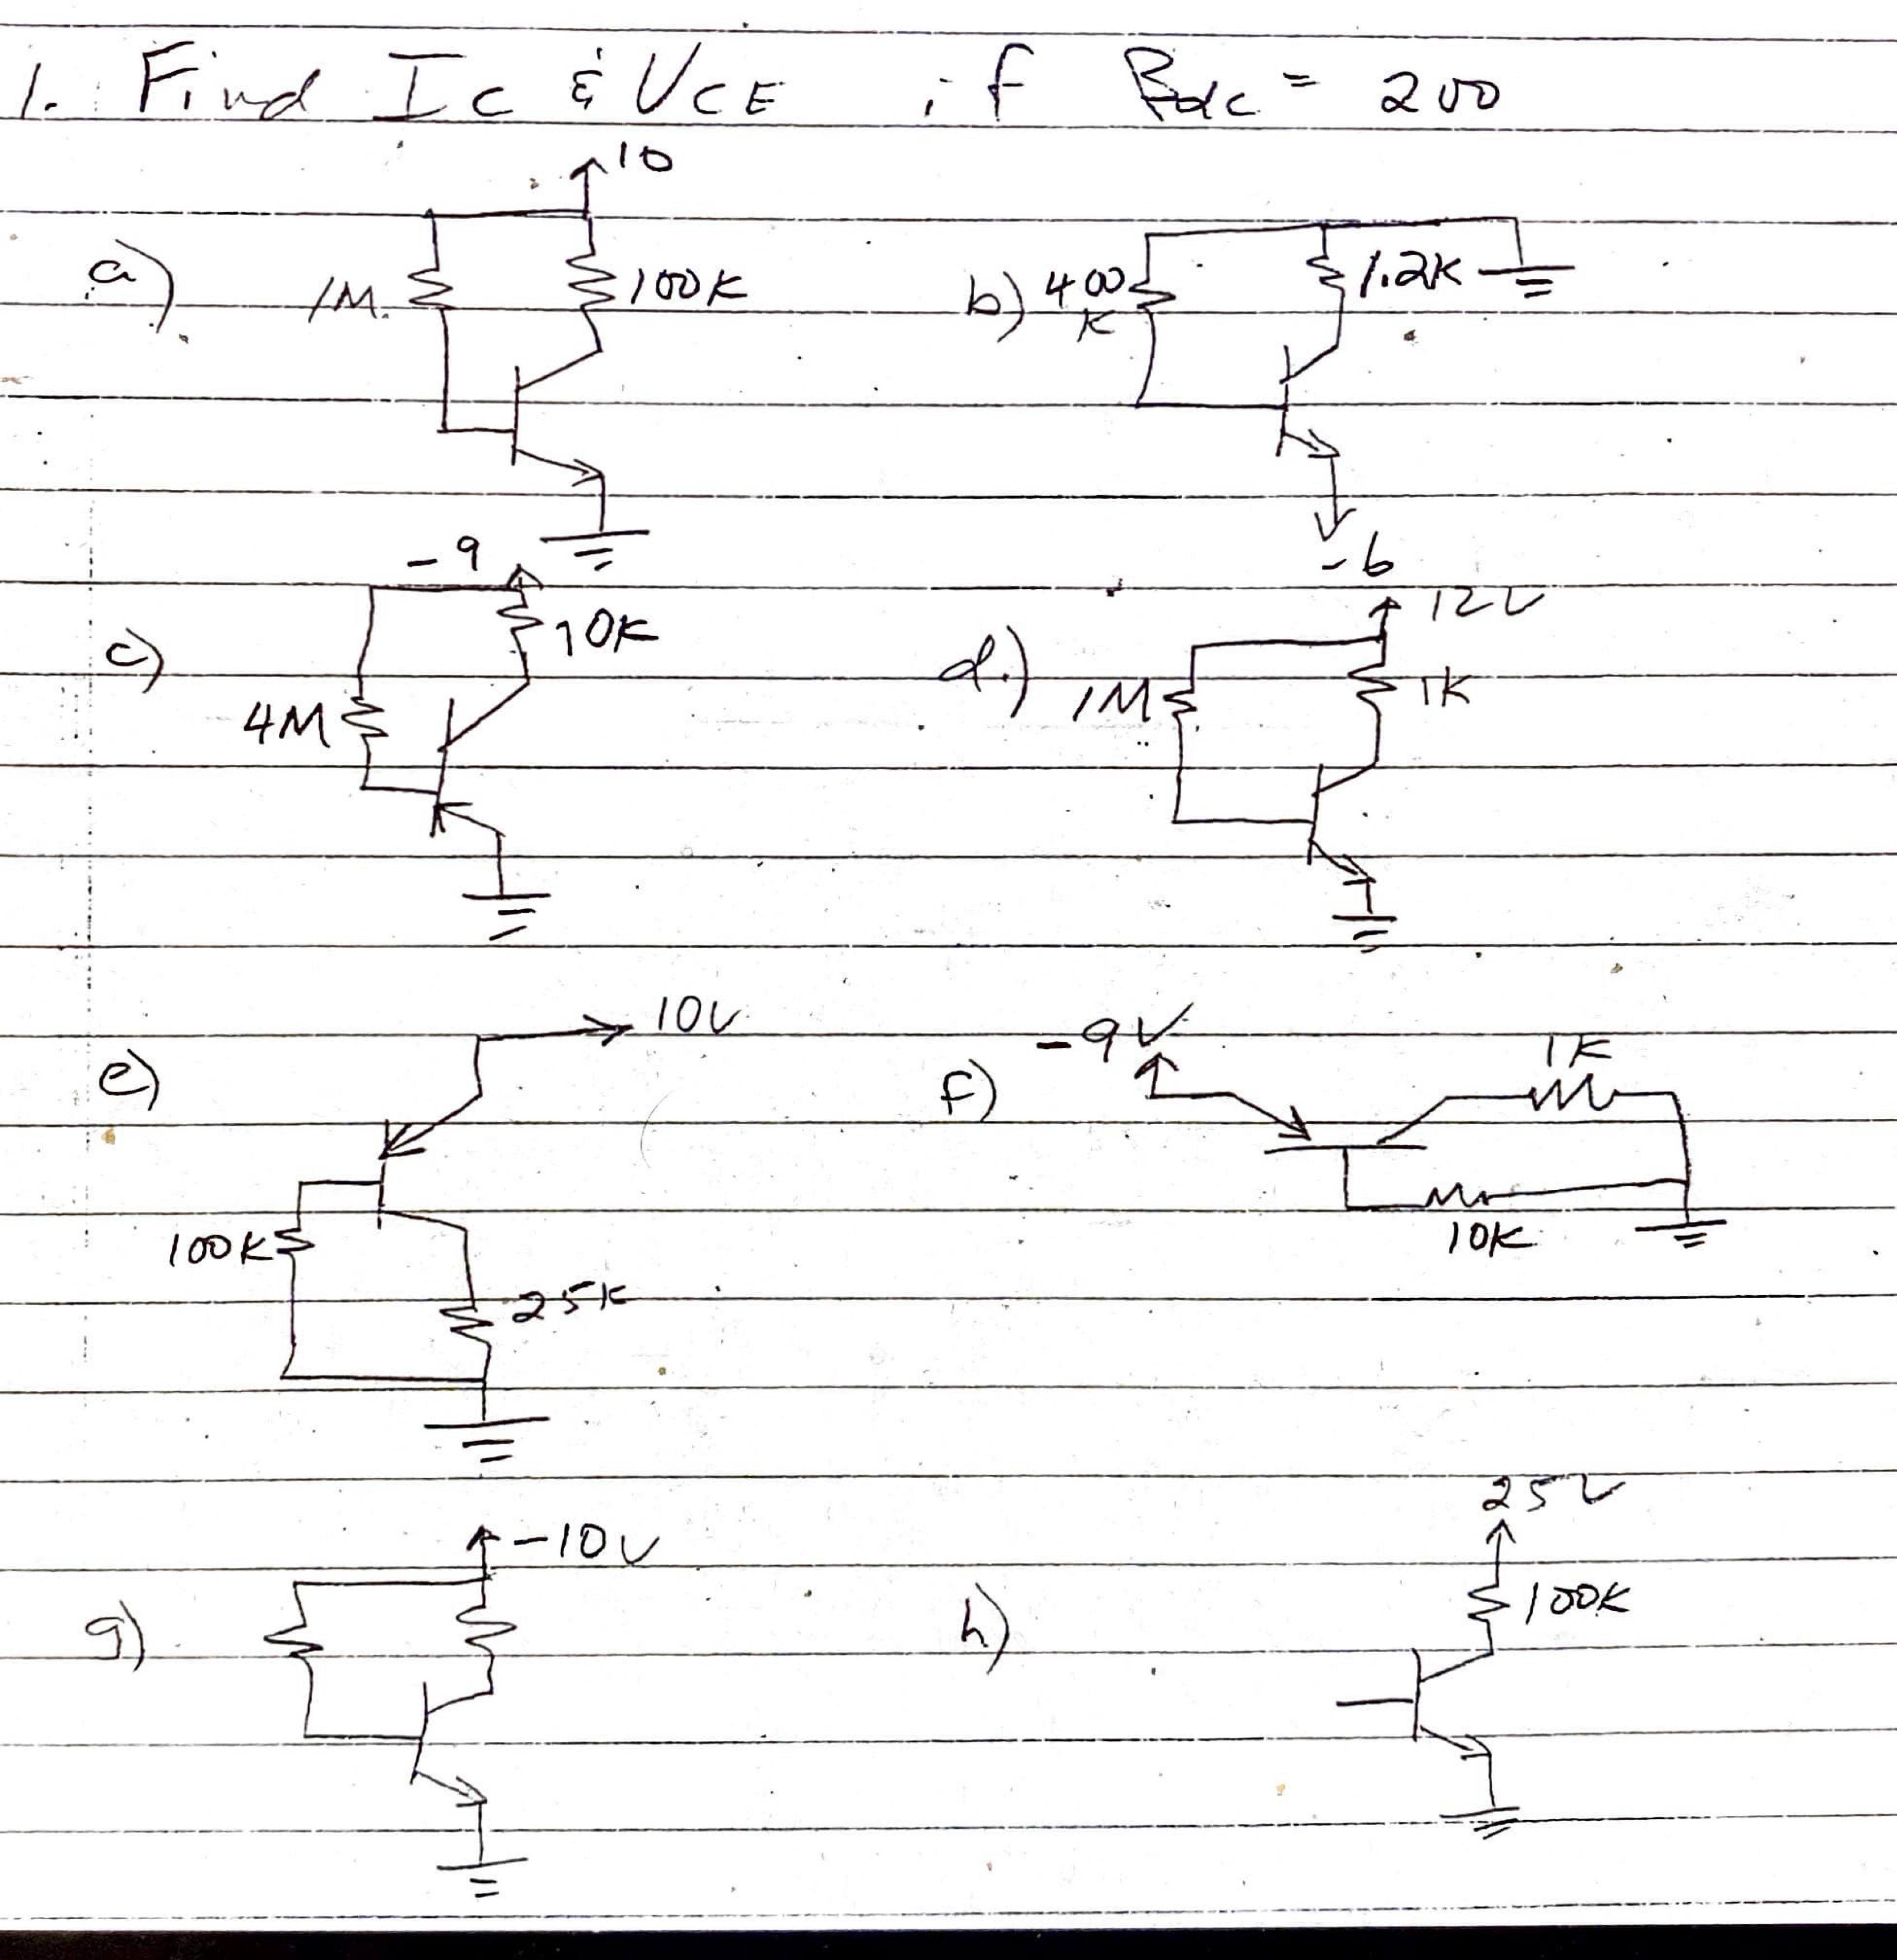 1. Find IC & VCE if Bdc = 200
10
a) 1M 100K
b) 400 K 1.2K
-6
-9
c) 4M 10K
12V
d.) 1M 1K
10V
e) 100K 25K
-9V
f) 1K
10K
-10V
g)
25V
h) 100K